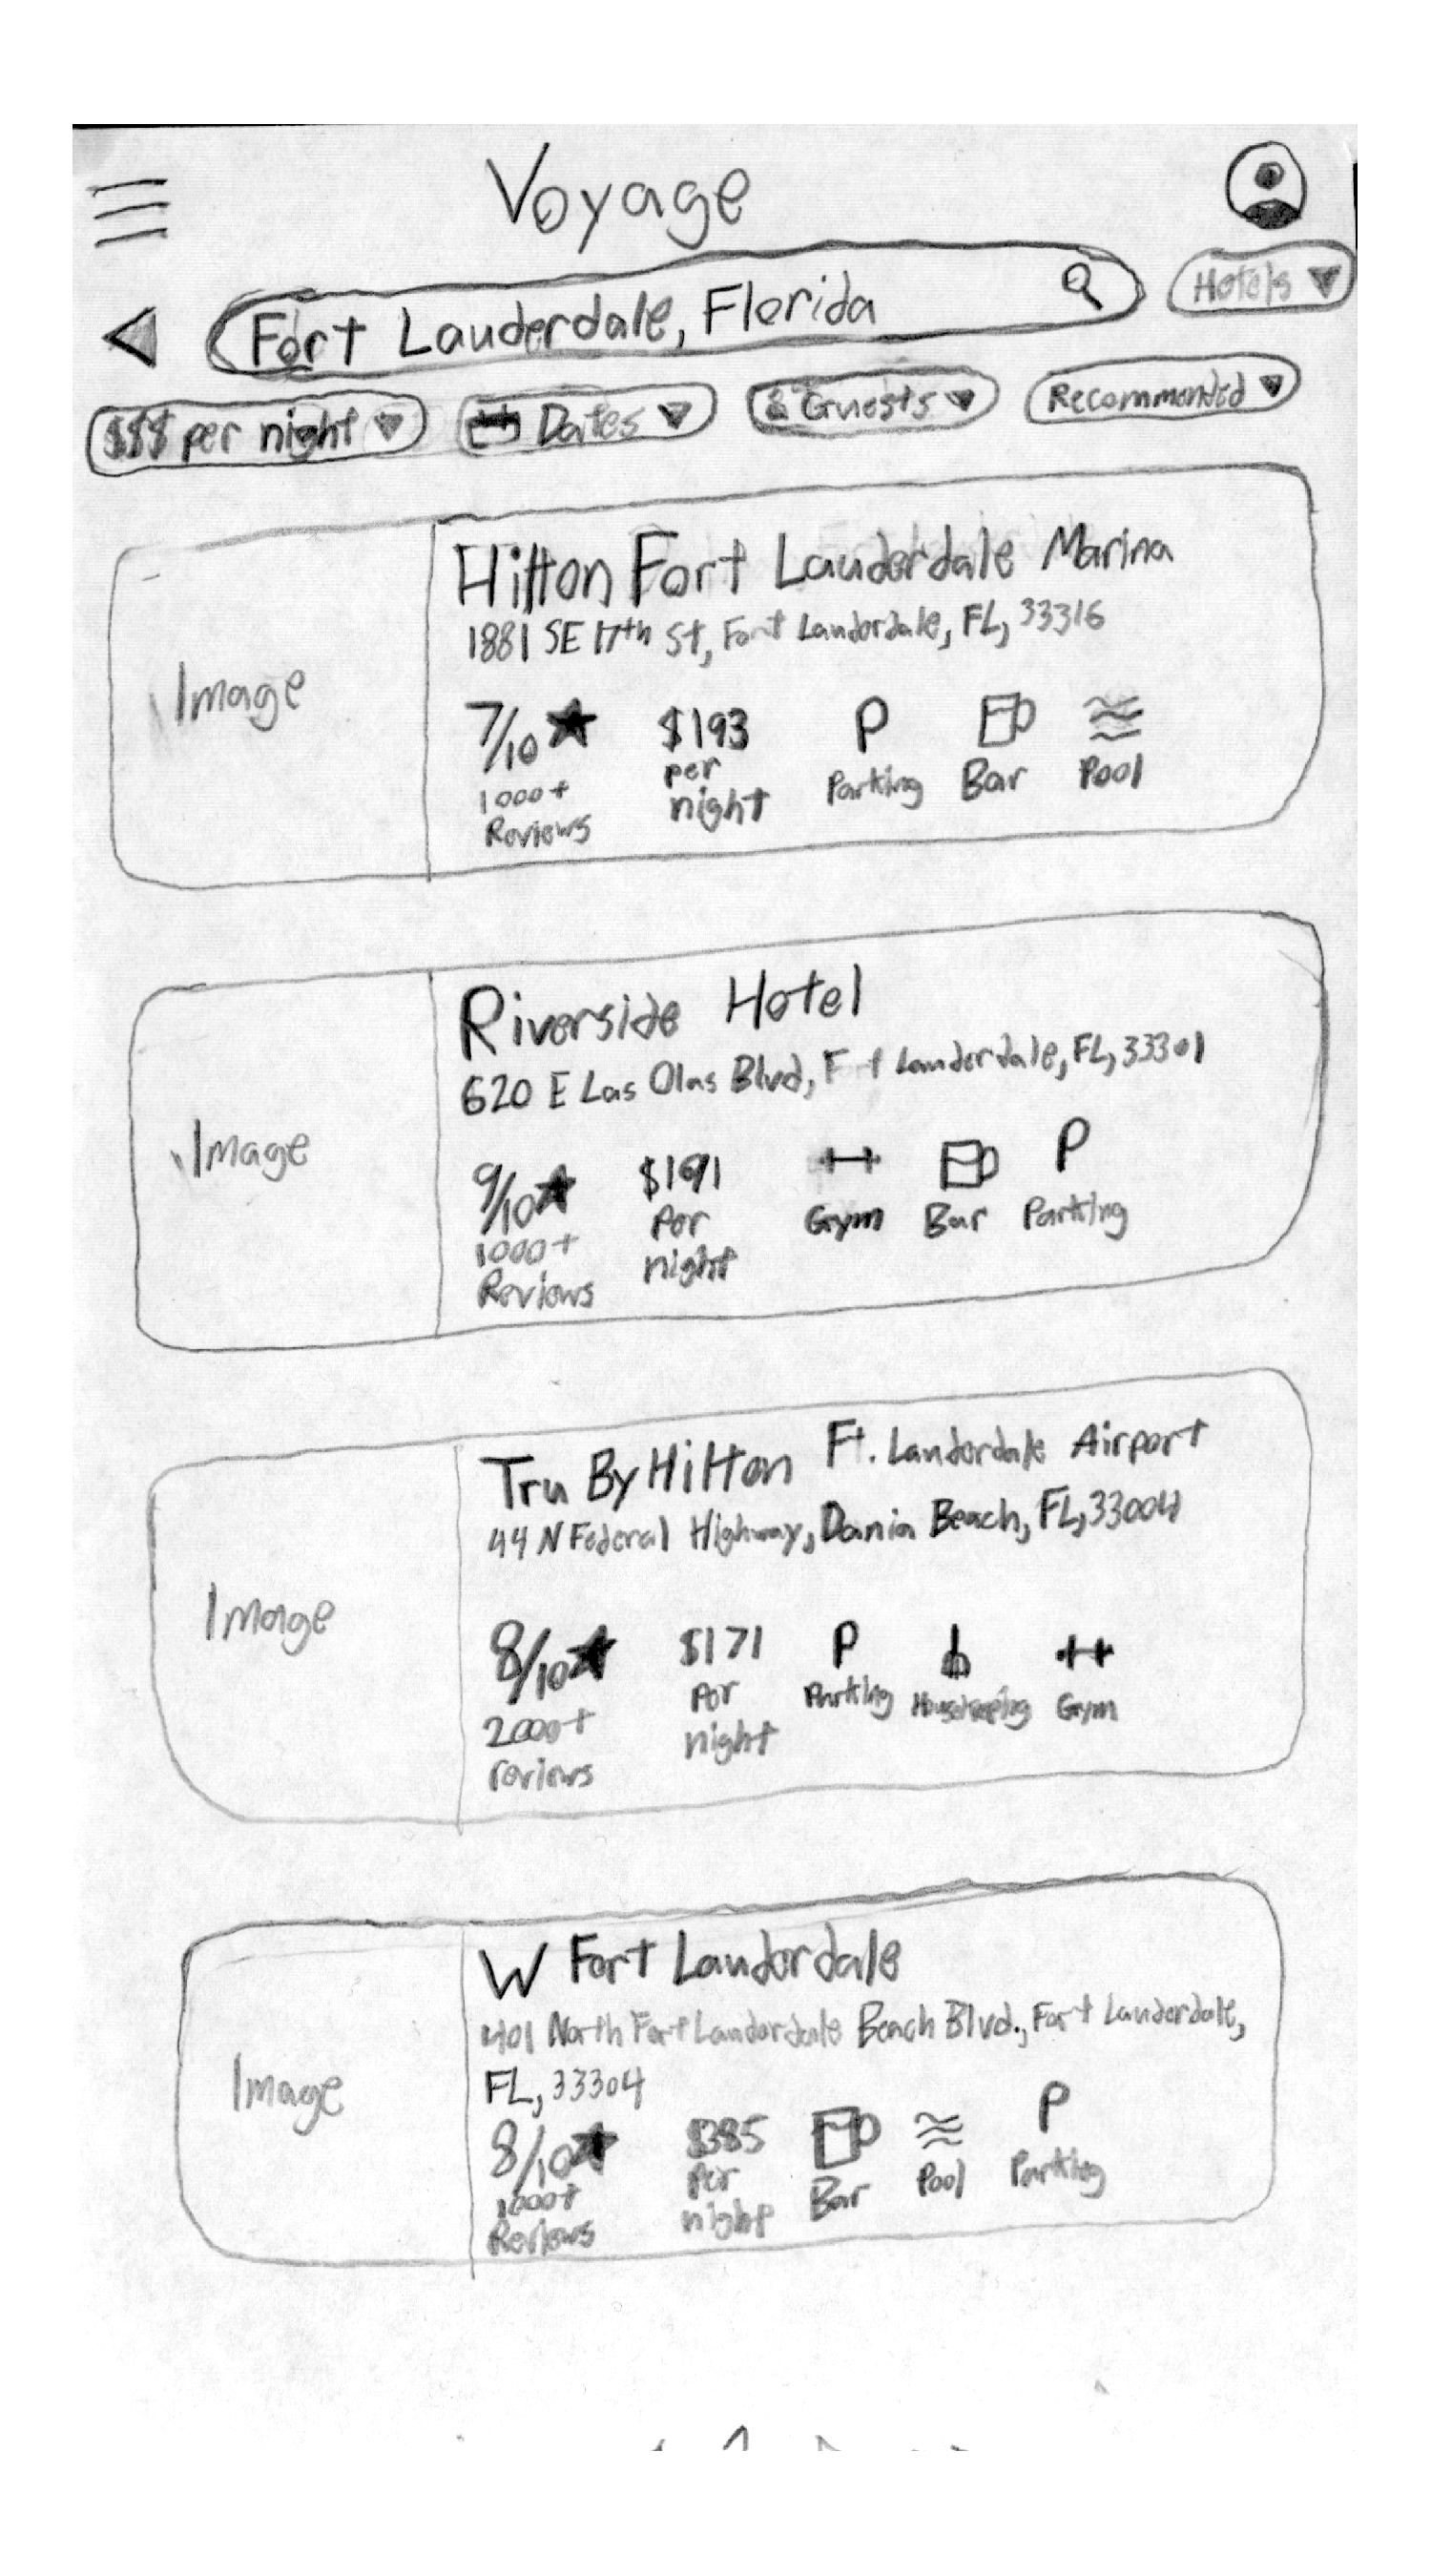 Voyage
Fort Lauderdale, Florida
Hotels
$$$ per night
Dates
Guests
Recommended
Hilton Fort Lauderdale Marina
1881 SE 17th St, Fort Lauderdale, FL, 33316
Image
7/10
1000+
Reviews
$193
per
night
Parking
Bar
Pool
Riverside Hotel
620 E Las Olas Blvd, Fort Lauderdale, FL, 33301
Image
9/10
1000+
Reviews
$191
Per
night
Gym
Bar
Parking
Tru By Hilton Ft. Lauderdale Airport
44 N Federal Highway, Dania Beach, FL, 33004
Image
8/10
2000+
reviews
$171
Per
night
P
Parking
Housekeeping
Gym
W Fort Lauderdale
401 North Fort Lauderdale Beach Blvd., Fort Lauderdale,
FL, 33304
Image
8/10
1000+
Reviews
$385
Per
night
Bar
Pool
P
Parking